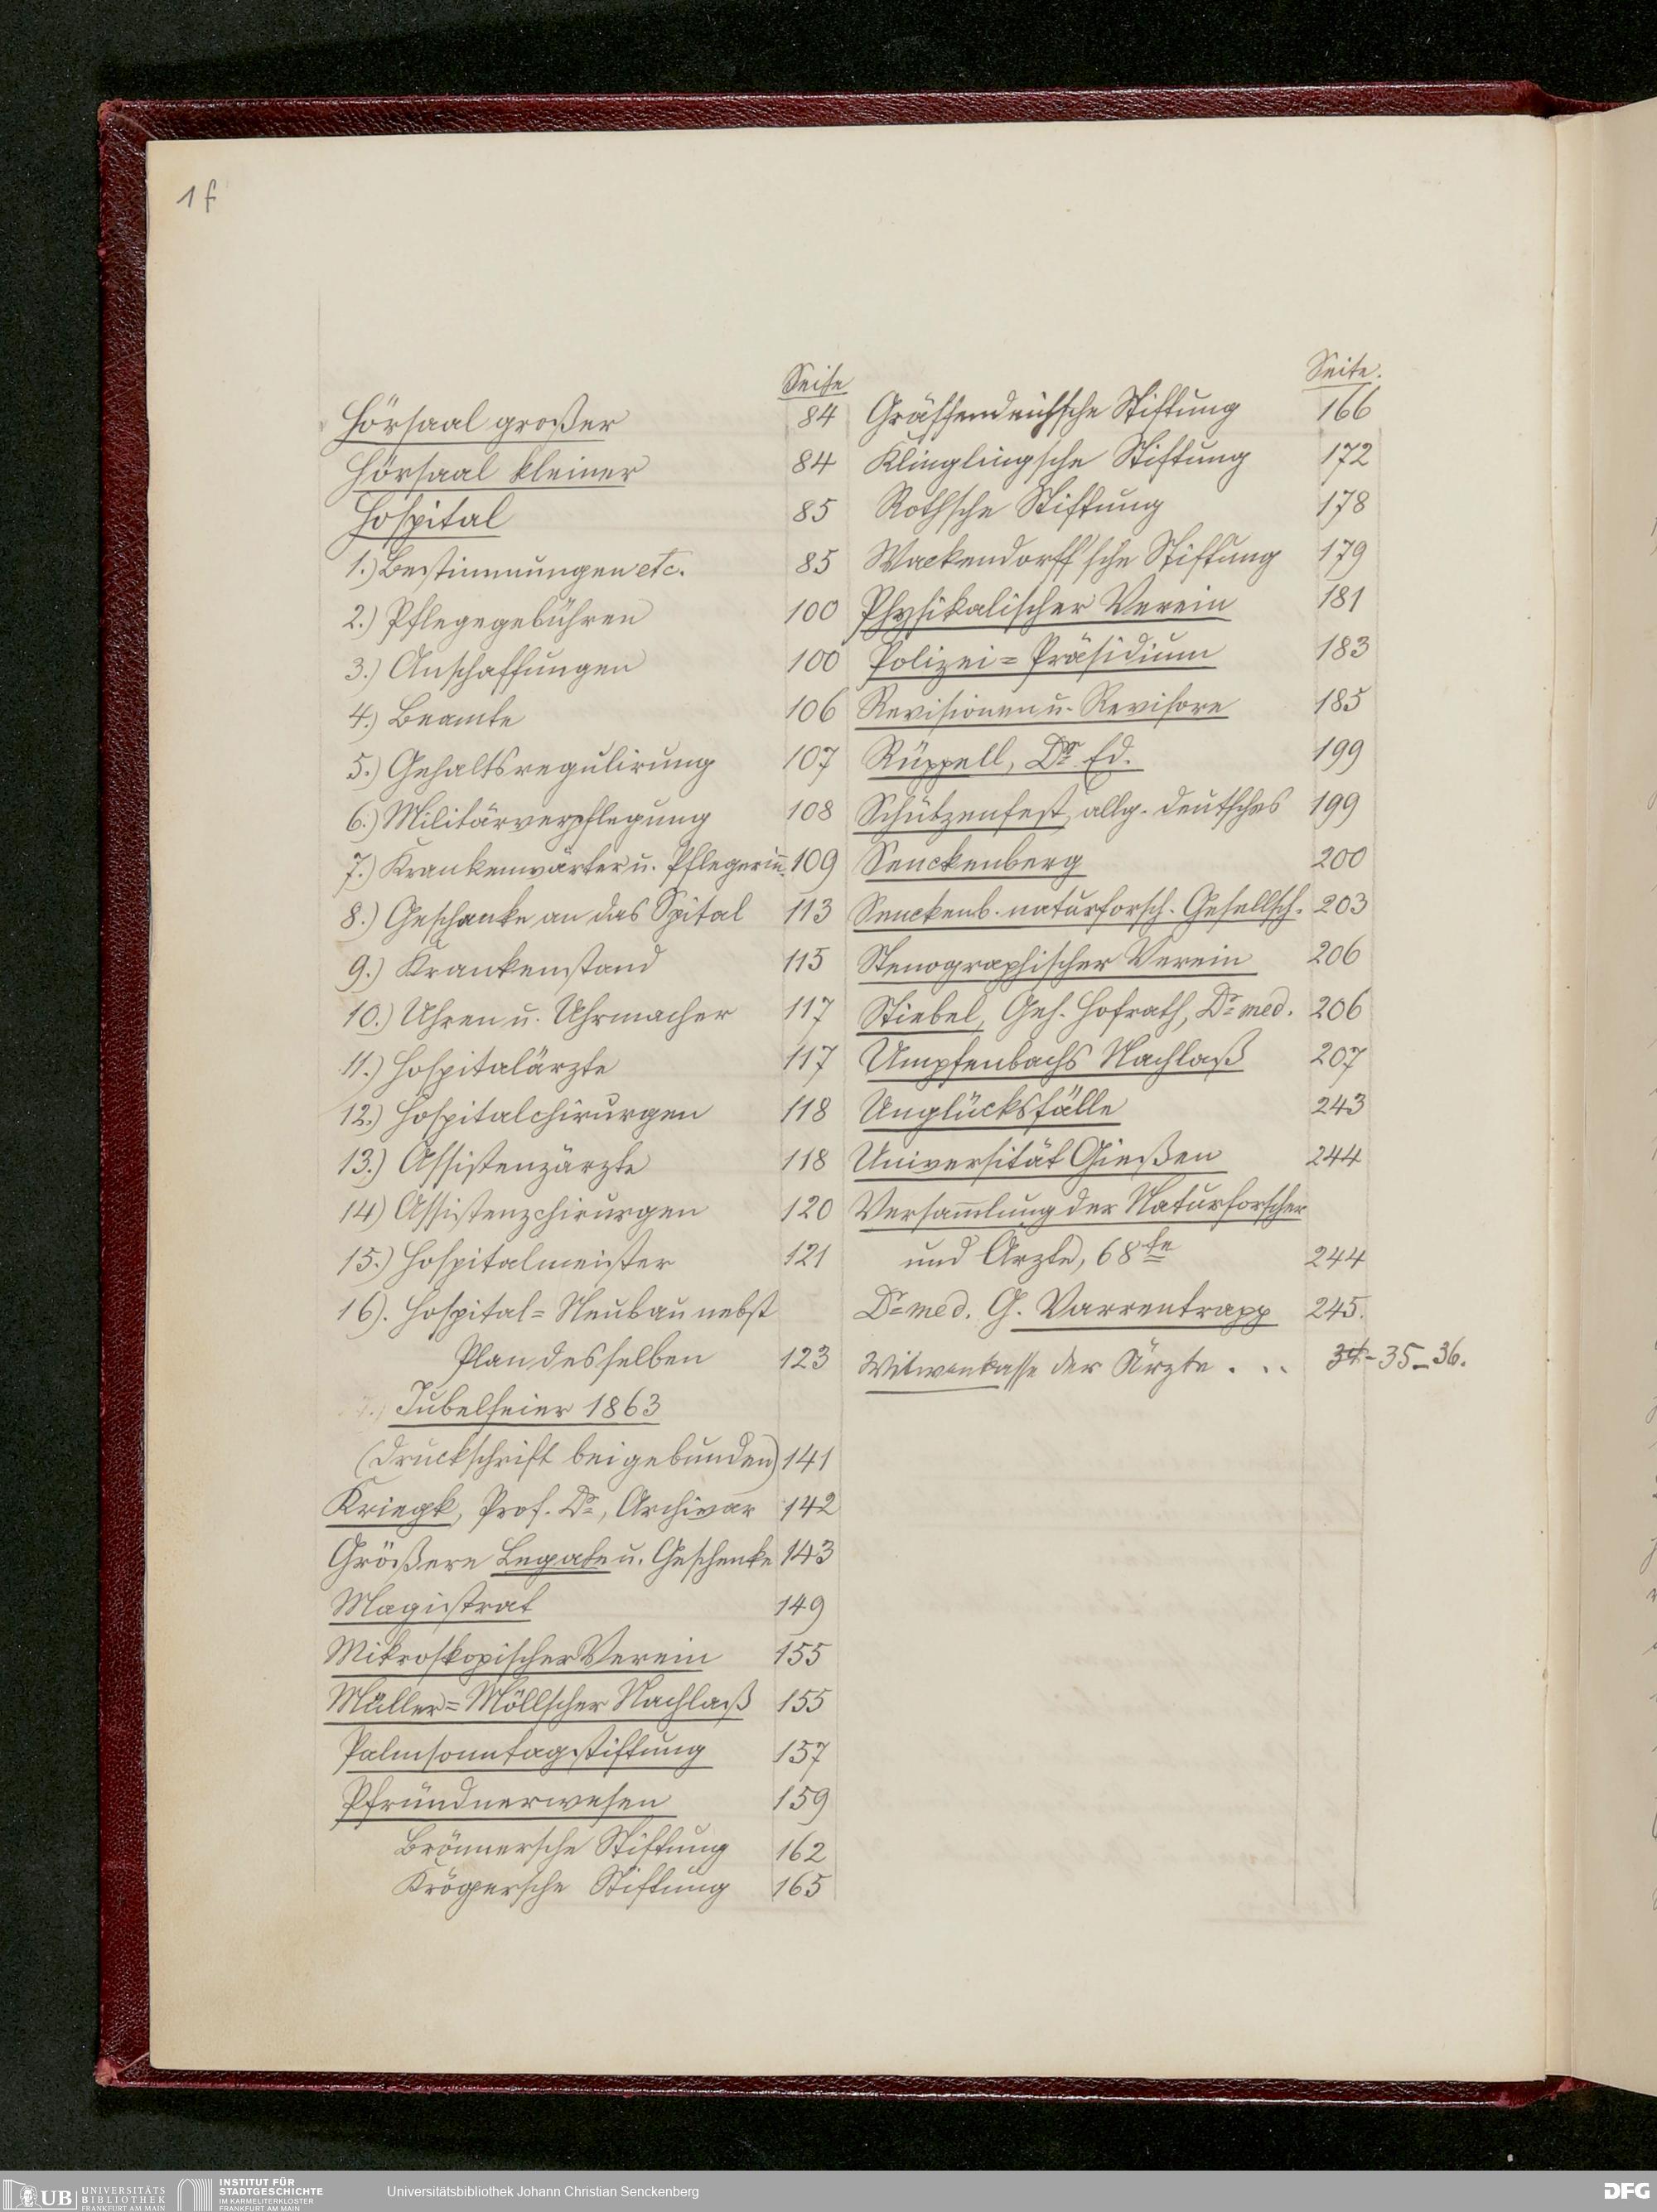 1f
Seite
Hörsaal großer 84
Hörsaal kleiner 84
Hospital 85
1.) Bestimmungen etc. 85
2.) Pflegegebühren 100
3.) Anschaffungen 100
4.) Beamte 106
5.) Gehaltsregulirung 107
6.) Militärverpflegung 108
7.) Krankenwärter u. Pflegerin̅. 109
8.) Geschenke an das Spital 113
9.) Krankenstand 115
10.) Uhren u. Uhrmacher 117
11.) Hospitalärzte 117
12.) Hospitalchirurgen 118
13.) Assistenzärzte 118
14) Assistenzchirurgen 120
15.) Hospitalmeister 121
16). Hospital=Neubau nebst
Plan desselben 123
Jubelfeier 1863
(Druckschrift beigebunden) 141
Kriegk, Prof. Dr, Archivar 142
Größere Legate u. Geschenke 143
Magistrat 149
Mikroskopischer Verein 155
Müller=Möllscher Nachlaß 155
Palmsonntagstiftung 157
Pfründnerwesen 159
Brönnersche Stiftung 162
Krögersche Stiftung 165
Seite.
Gräffendeichsche Stiftung 166
Klinglingsche Stiftung 172
Rothsche Stiftung 178
Wackendorff'sche Stiftung 179
Physikalischer Verein 181
Polizei=Präsidium 183
Revisionen u. Revisore 185
Rüppell, Dr. Ed. 199
Schützenfest, allg. deutsches 199
Senckenberg 200
Senckenb. naturforsch. Gesellsch. 203
Stenographischer Verein 206
Stiebel, Geh. Hofrath, Dr med. 206
Umpfenbachs Nachlaß 207
Unglücksfälle 243
Universität Gießen 244
Versam̅lung der Naturforscher
und Ärzte, 68te 244
Dr med. G. Varrentrapp 245.
Witwenkasse der Ärzte . . . 34-35-36.
UB UNIVERSITÄTS
BIBLIOTHEK
FRANKFURT AM MAIN
INSTITUT FÜR
STADTGESCHICHTE
IM KARMELITERKLOSTER
FRANKFURT AM MAIN
Universitätsbibliothek Johann Christian Senckenberg
DFG